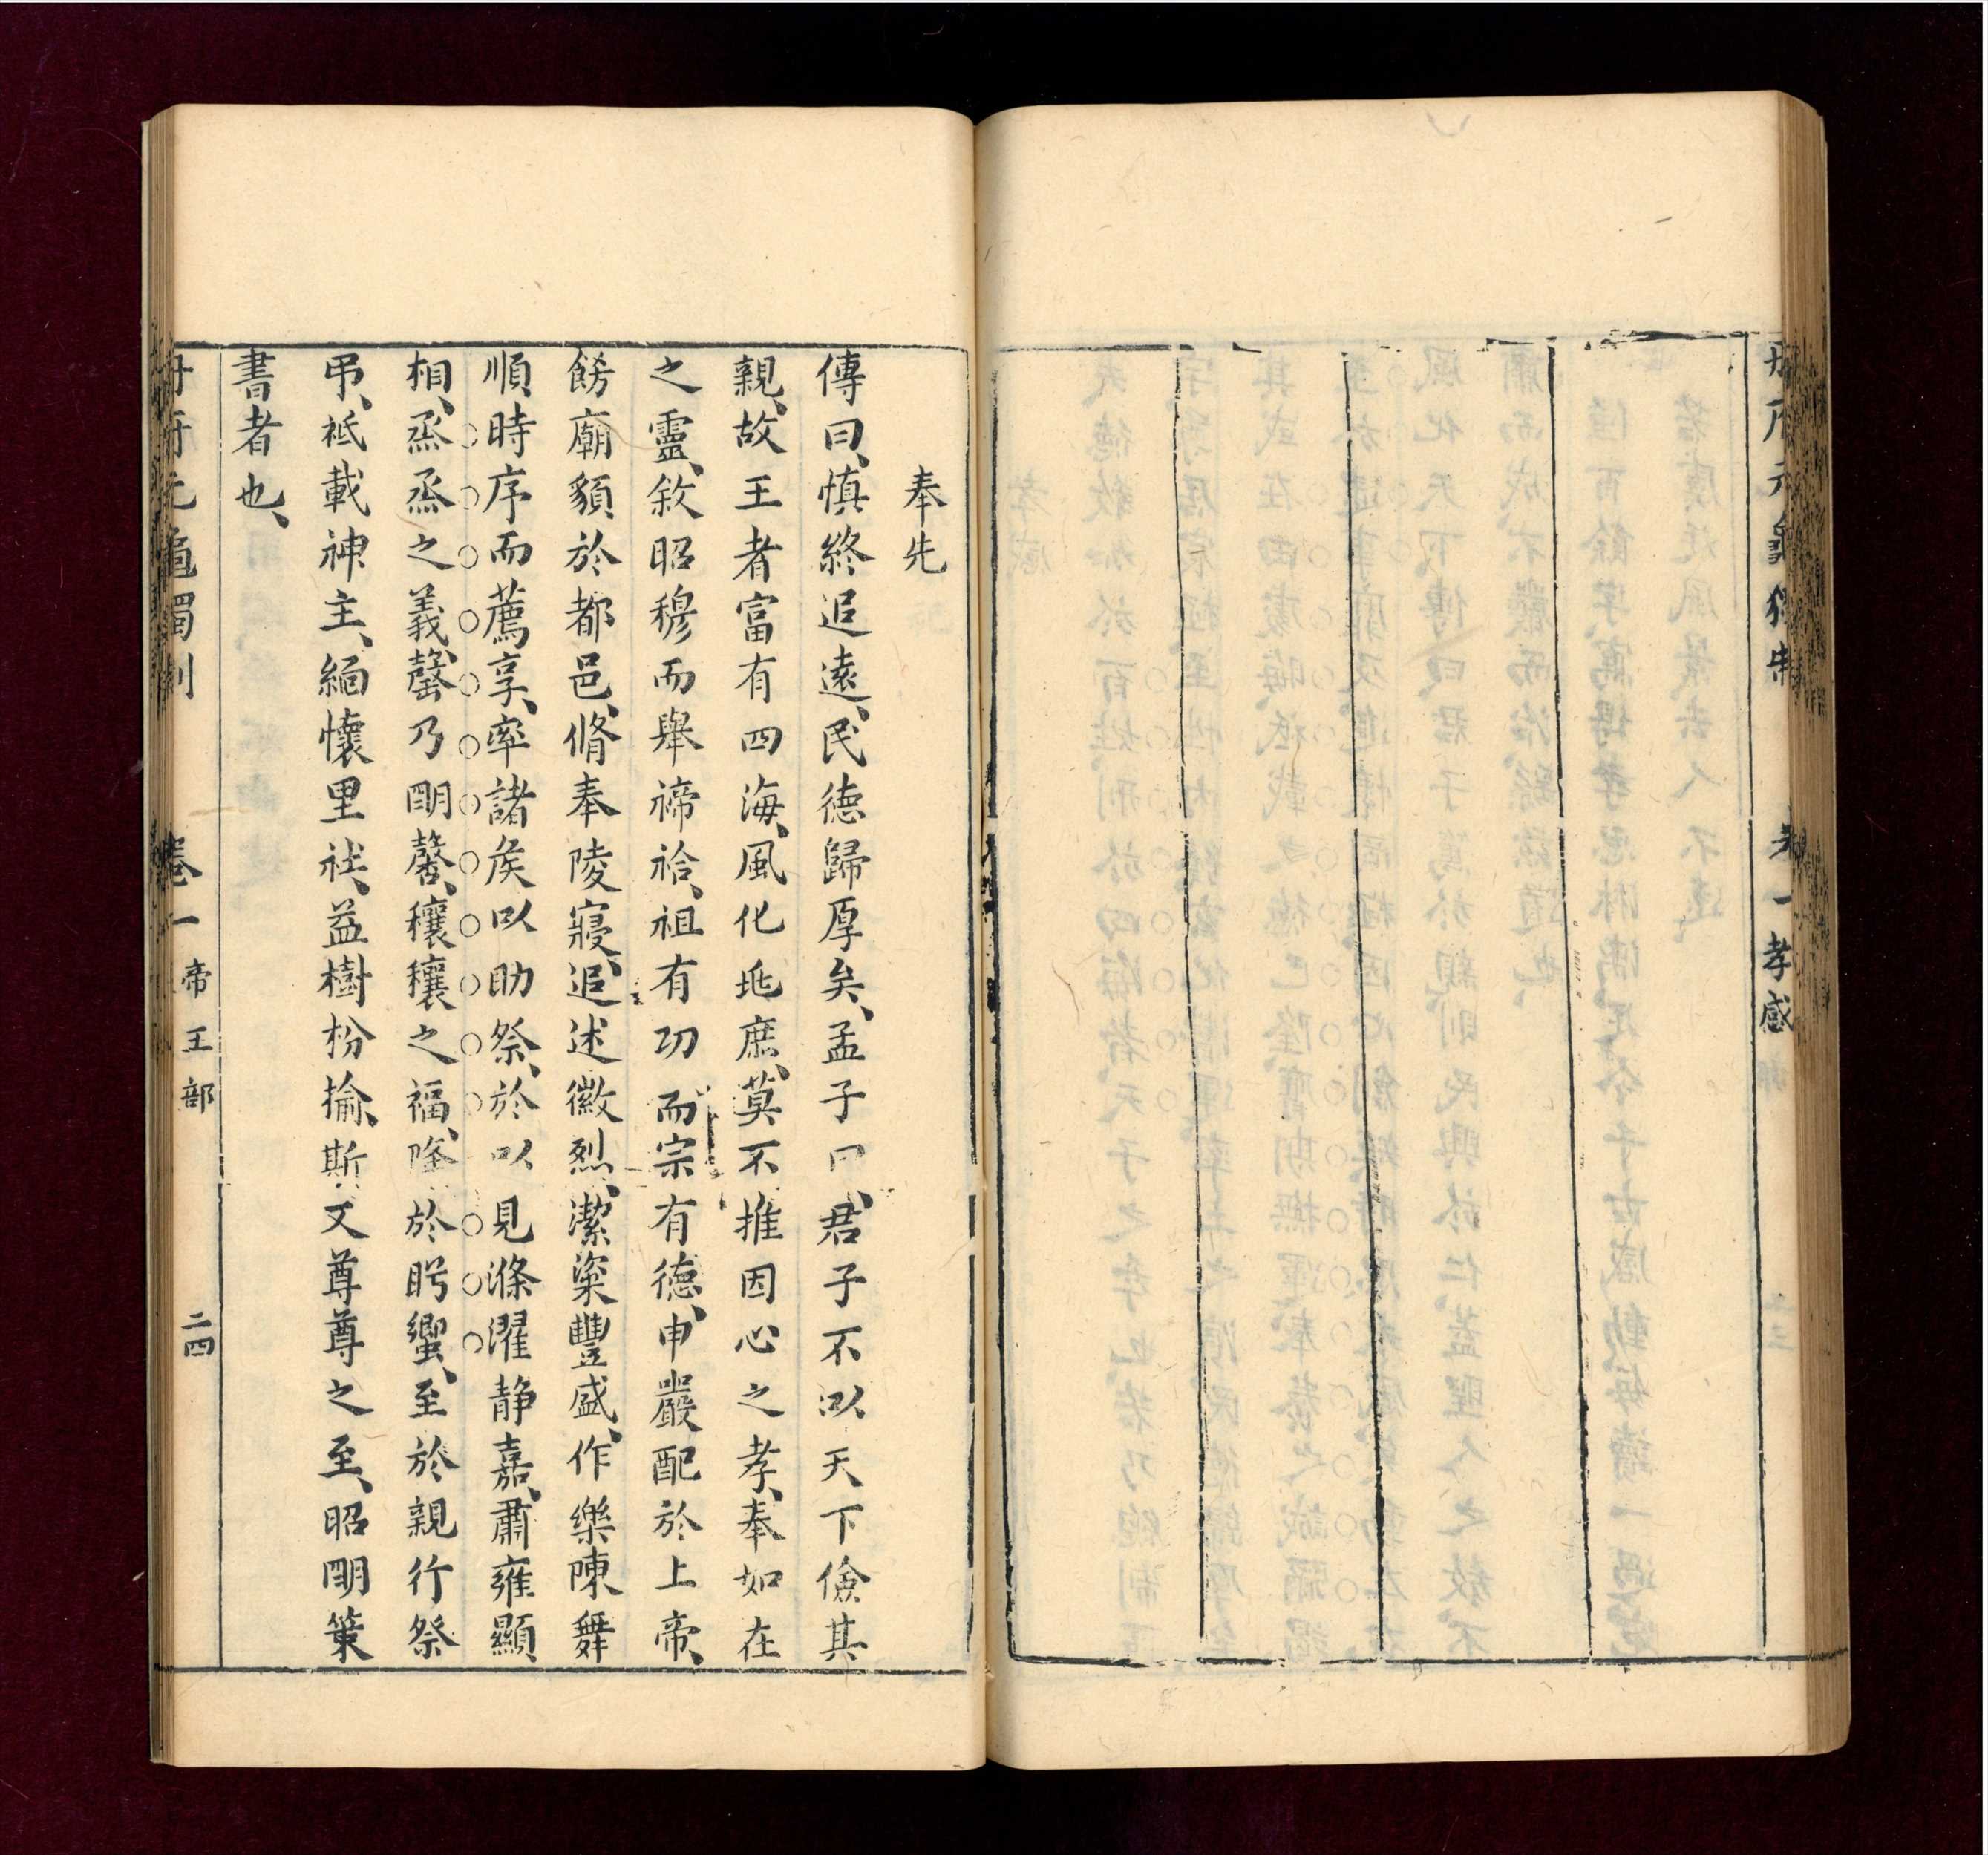 冊府元龜獨制 卷一 孝感
奉先
傳曰、慎終追遠、民德歸厚矣、孟子曰、君子不以天下儉其
親、故王者富有四海、風化兆庶、莫不推因心之孝、奉如在
之靈、敘昭穆而舉禘祫、祖有功而宗有德、申嚴配於上帝、
餝廟貌於都邑、脩奉陵寢、追述徽烈、潔粢豐盛、作樂陳舞
順時序而薦享、率諸矦以助祭、於以見滌濯静嘉、肅雍顯
相、烝烝之義、罄乃明馨、穰穰之福、隆於肸蠁、至於親行祭
帠、祗載神主、緬懷里社、益樹枌揄、斯文尊尊之至、昭明策
書者也、
冊府元龜獨制 卷一 帝王部 二四